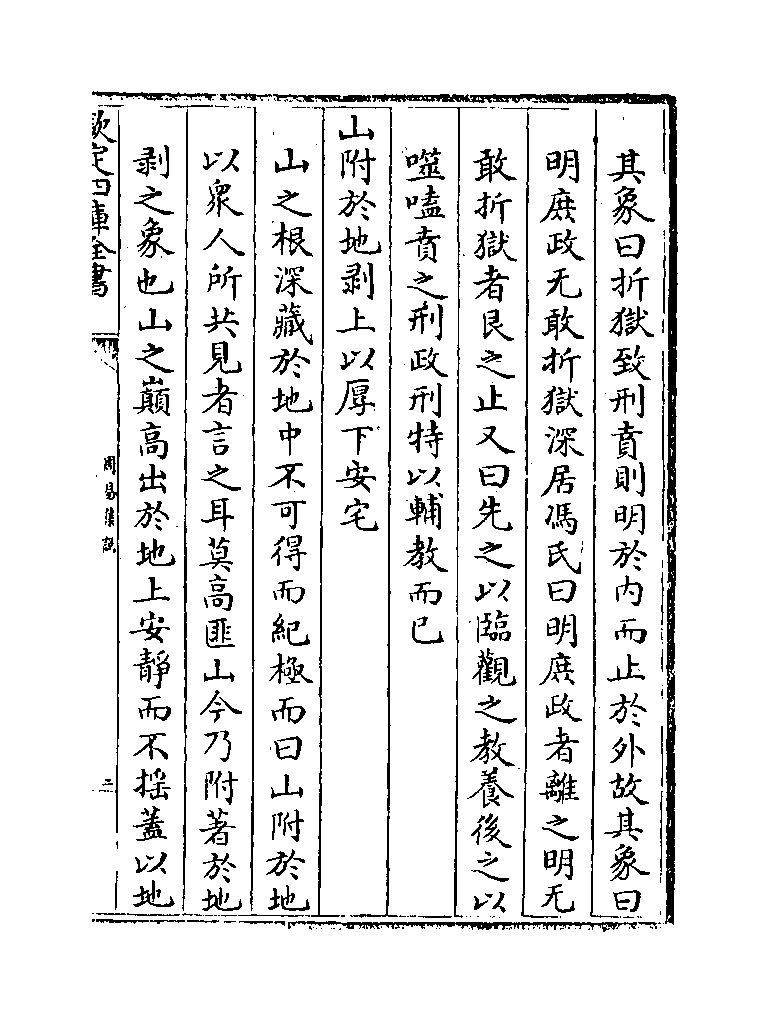 其象曰折獄致刑賁則明於内而止於外故其象曰
明庶政无敢折獄深居馮氏曰明庶政者離之明无
敢折獄者艮之止又曰先之以臨觀之教養後之以
噬嗑賁之刑政刑特以輔教而已
山附於地剥上以厚下安宅
山之根深藏於地中不可得而紀極而曰山附於地
以衆人所共見者言之耳莫高匪山今乃附著於地
剥之象也山之巔高出於地上安靜而不揺蓋以地
欽定四庫全書
周易集說
二